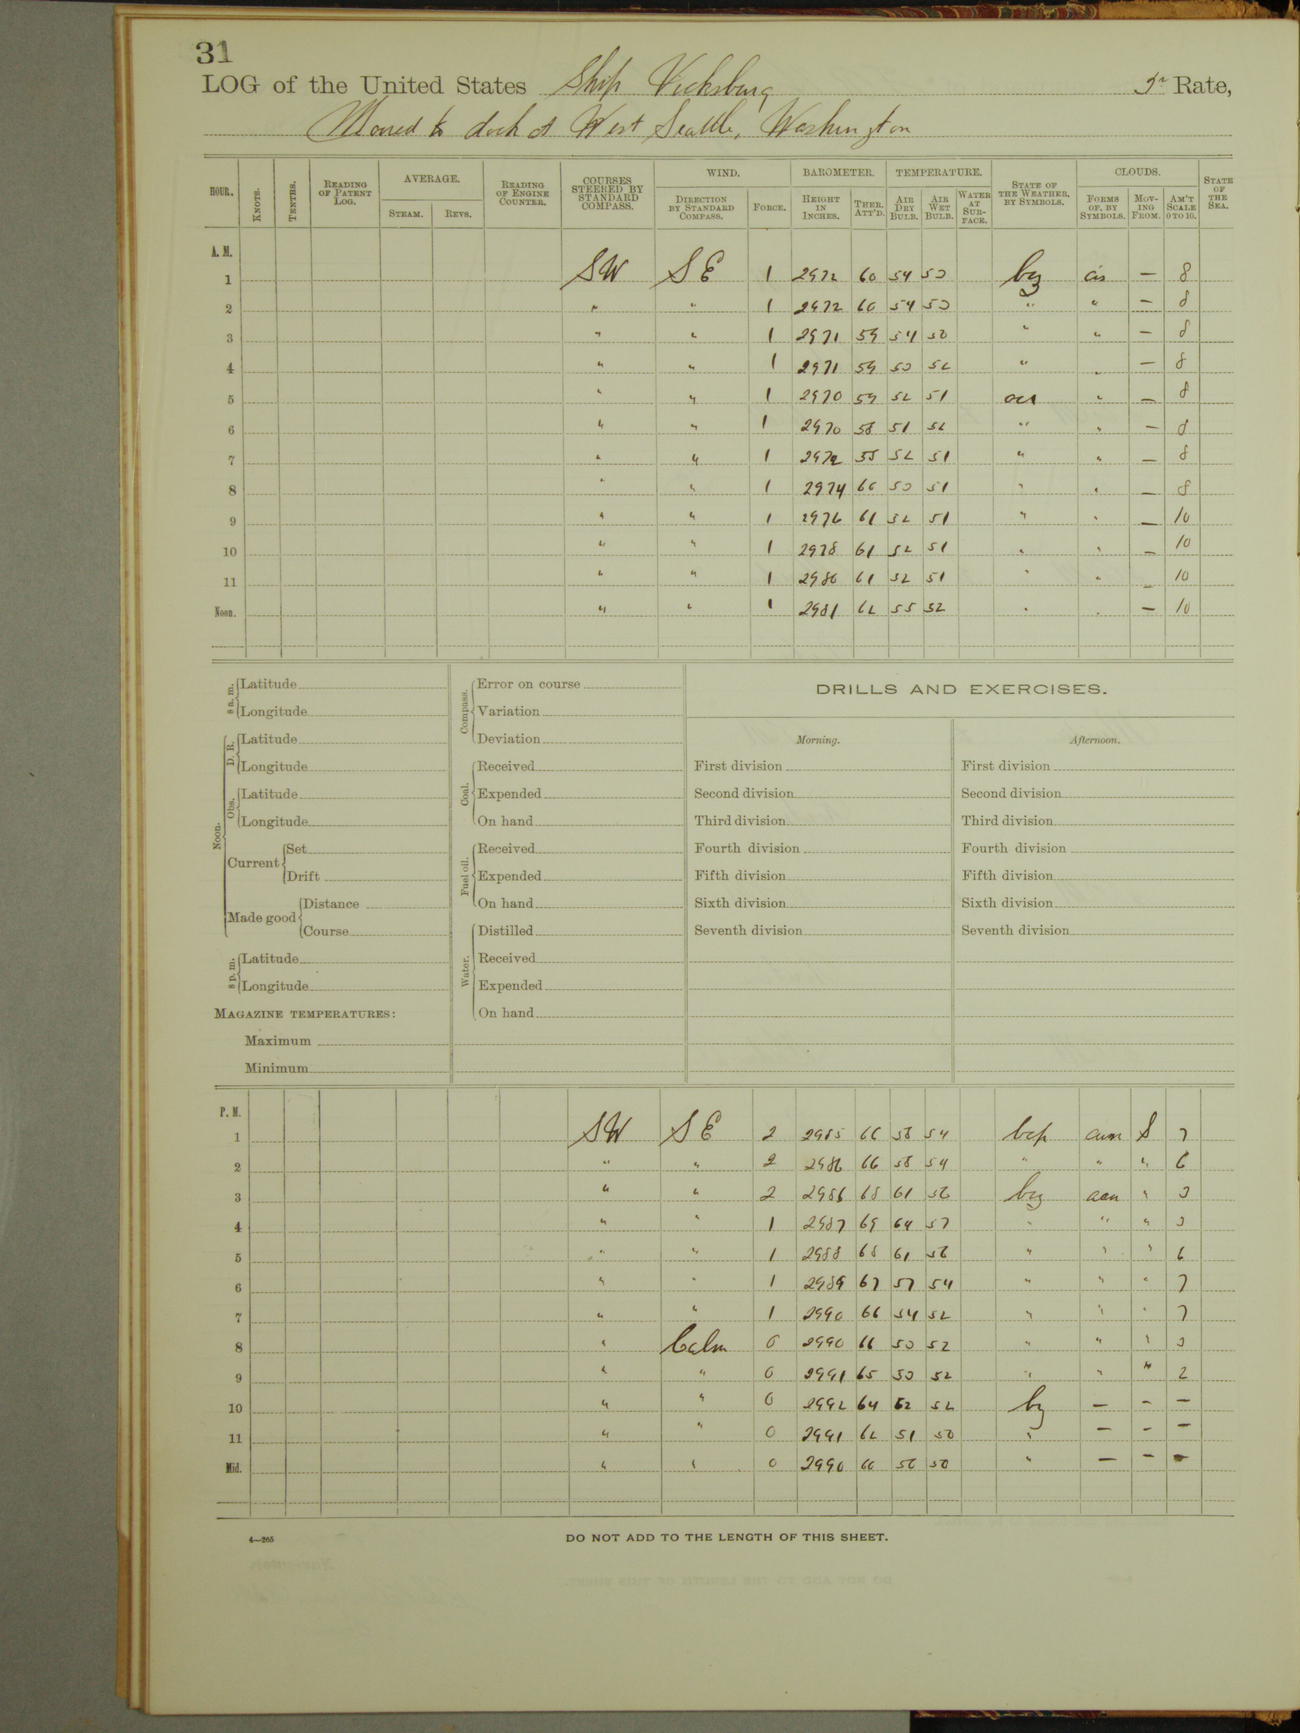 31
LOG of the United States Ship Vicksburg Rate,
Moored to dock at West Seattle, Washington
HOUR. KNOTS. TENTHS. READING OF PATENT LOG. AVERAGE. STEAM. REVS. READING OF ENGINE COUNTER. COURSES STEERED BY STANDARD COMPASS. WIND. DIRECTION BY STANDARD COMPASS. FORCE. BAROMETER. HEIGHT IN INCHES. THER. ATT'D. TEMPERATURE. AIR DRY BULB. AIR WET BULB. WATER AT SURFACE. STATE OF THE WEATHER, BY SYMBOLS. CLOUDS. FORMS OF, BY SYMBOLS. MOVING FROM. AM'T SCALE 0 TO 10. STATE OF THE SEA.
A. M.
1 SW SE 1 2972 60 54 53 bz cis — 8
2 " " 1 2972 60 54 53 " " — 8
3 " " 1 2971 59 54 " " — 8
4 " " 1 2971 59 53 52 " " — 8
5 " " 1 2970 59 52 51 " — 8
6 " " 1 2970 58 51 52 " " — 8
7 " " 1 55 52 51 " " — 8
8 " " 1 2974 60 53 51 " " — 8
9 " " 1 2976 61 52 51 " " — 10
10 " " 1 2978 61 52 51 " " — 10
11 " " 1 2980 61 52 51 " " — 10
Noon. " " 1 2981 62 55 52 " " — 10
8 a. m. Latitude
Longitude
Noon. D. R. Latitude
Longitude
Obs. Latitude
Longitude
Current Set
Drift
Made good Distance
Course
8 p. m. Latitude
Longitude
MAGAZINE TEMPERATURES:
Maximum
Minimum
Compass. Error on course
Variation
Deviation
Coal. Received
Expended
On hand
Fuel oil. Received
Expended
On hand
Water. Distilled
Received
Expended
On hand
DRILLS AND EXERCISES.
Morning.
First division
Second division
Third division
Fourth division
Fifth division
Sixth division
Seventh division
Afternoon.
First division
Second division
Third division
Fourth division
Fifth division
Sixth division
Seventh division
P. M.
1 SW SE 2 2985 66 58 54 bcp cum S 7
2 " " 2 2986 66 58 54 " " " 6
3 " " 2 2986 68 61 56 bcz " 3
4 " " 1 2987 69 64 57 " " " 3
5 " " 1 2988 68 61 56 " " " 6
6 " " 1 2989 67 57 54 " " " 7
7 " " 1 2990 66 54 52 " " " 7
8 " Calm 0 2990 66 53 52 " " " 3
9 " " 0 2991 65 53 52 " " " 2
10 " " 0 2992 64 52 52 bz — — —
11 " " 0 2991 62 51 50 " — — —
Mid. " " 0 2990 60 50 50 " — — —
4—265
DO NOT ADD TO THE LENGTH OF THIS SHEET.